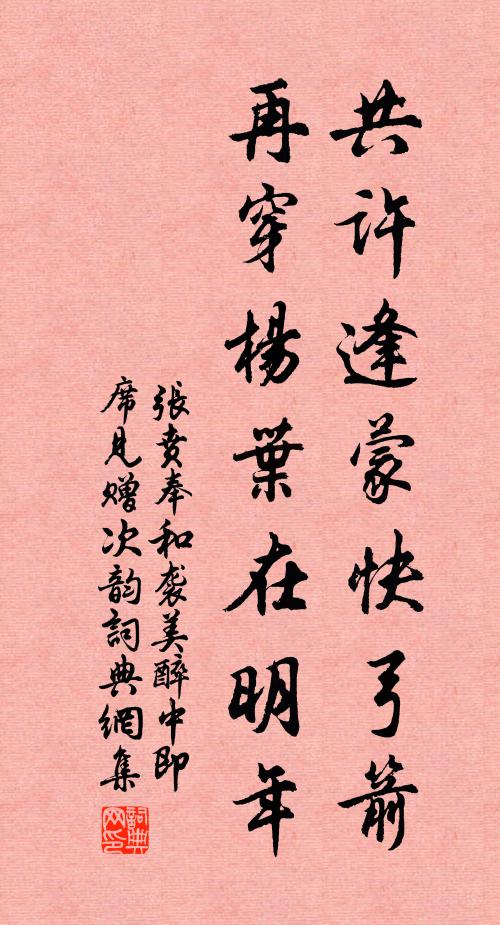 共許逢蒙快弓箭
再穿楊葉在明年
張賁奉和袭美醉中即
席見赠次韵詞典網集
詞典网印